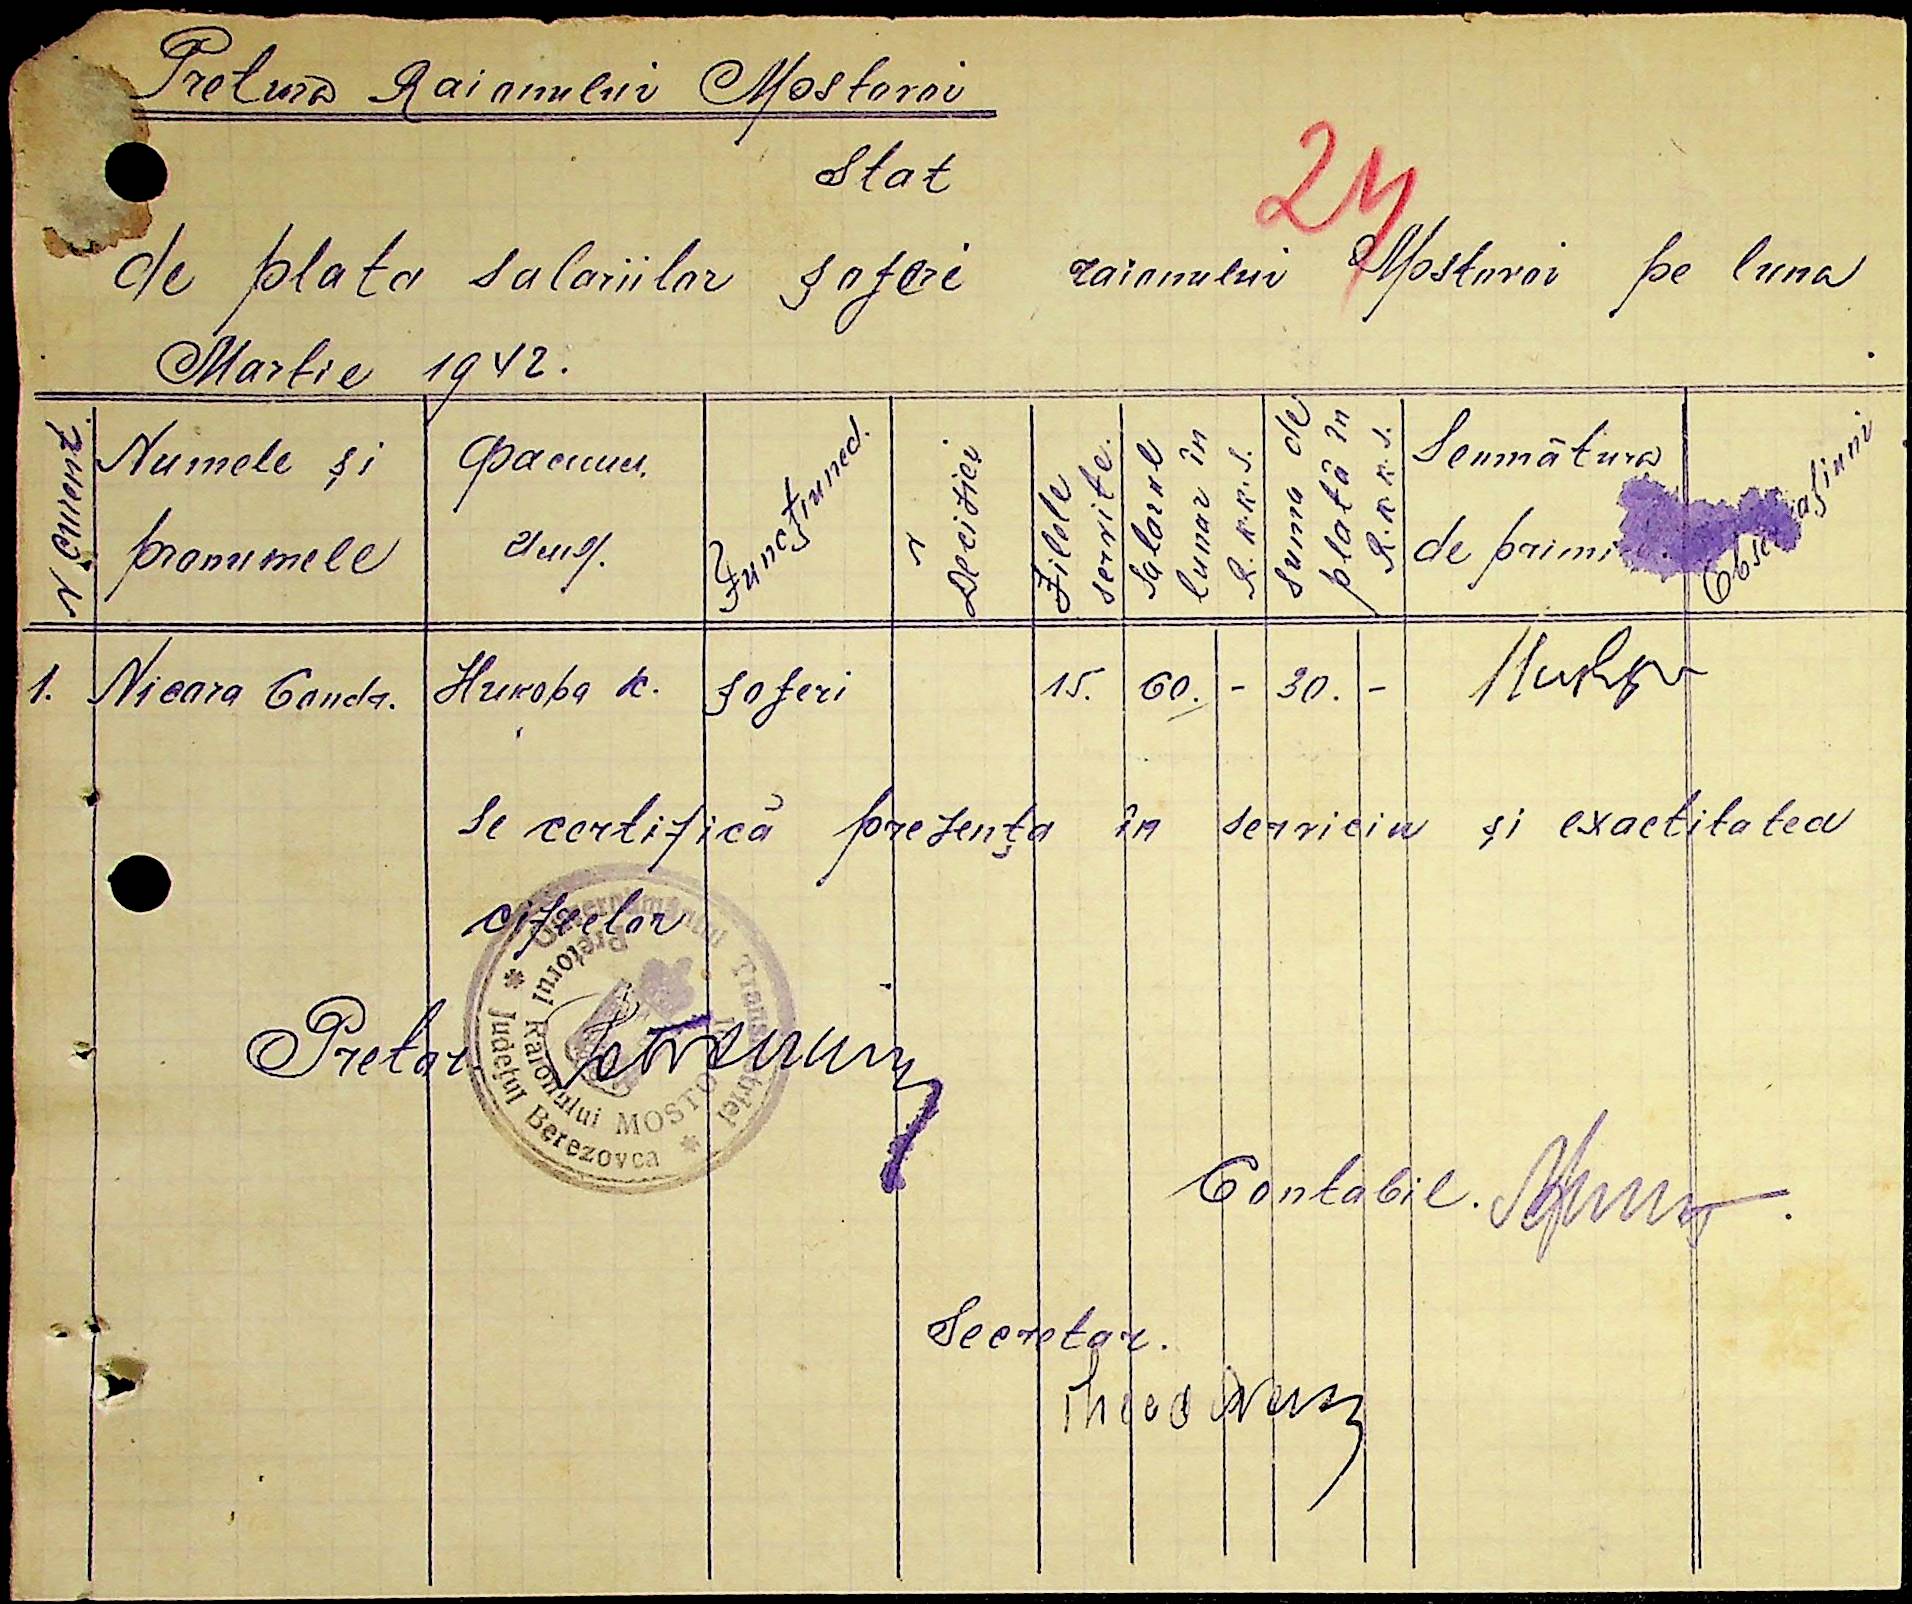 Pretura Raionului Mostovoi
24
Stat
de plata salariilor șoferi raionului Mostovoi pe luna
Martie 1942.
N Curent.
Numele și pronumele
Фамили. инд.
Funcțiuned.
N Deciziei
Zilele servite.
Salarul lunar în R.K.K.S.
Suma de plată în R.K.K.S.
Semnătura de primi
Observațiuni
1. Nicara Conda. Никора К. șoferi 15. 60. - 30. -
Se certifică prezența în serviciu și exactitatea
cifrelor
Guvernământul Transnistriei
Pretorul Raionului MOSTO
* Județul Berezovca *
Pretor
Contabil.
Secretar.